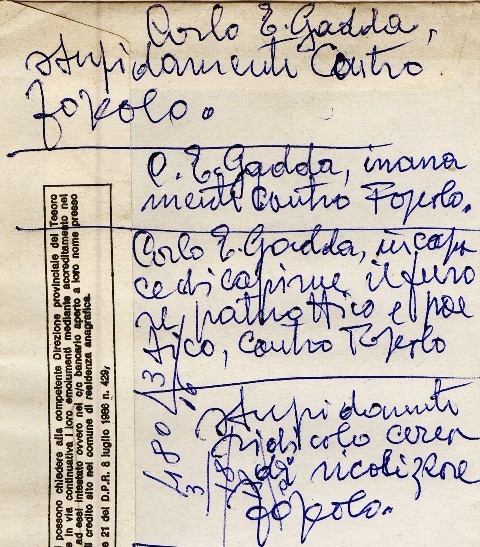 Carlo E. Gadda,
stupidamente contro
Foscolo.
C. E. Gadda, inana
mente contro Foscolo.
Carlo E. Gadda, incapa
ce di capirne il furo
re patriottico e poe
tico, contro Foscolo
stupidamente
ridicolo cerca
di ridicolizzare
Foscolo.
480
3
possono chiedere alla competente Direzione provinciale del Tesoro
e in via continuativa i loro emolumenti mediante accreditamento nel
ad essi intestato ovvero nel c/c bancario aperto a loro nome presso
i credito sito nel comune di residenza anagrafica.
e 21 del D.P.R. 8 luglio 1986 n. 429,